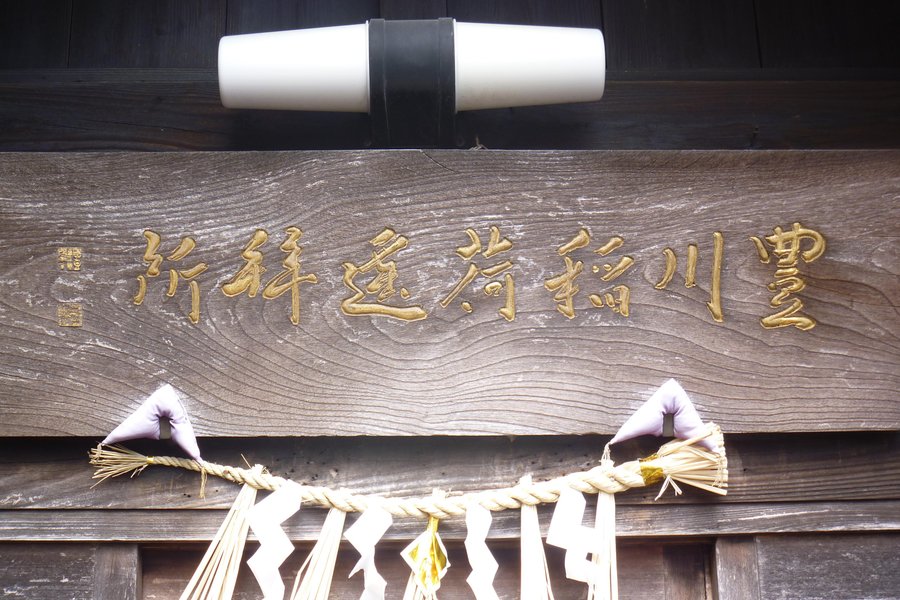 豊川稲荷遥拝所